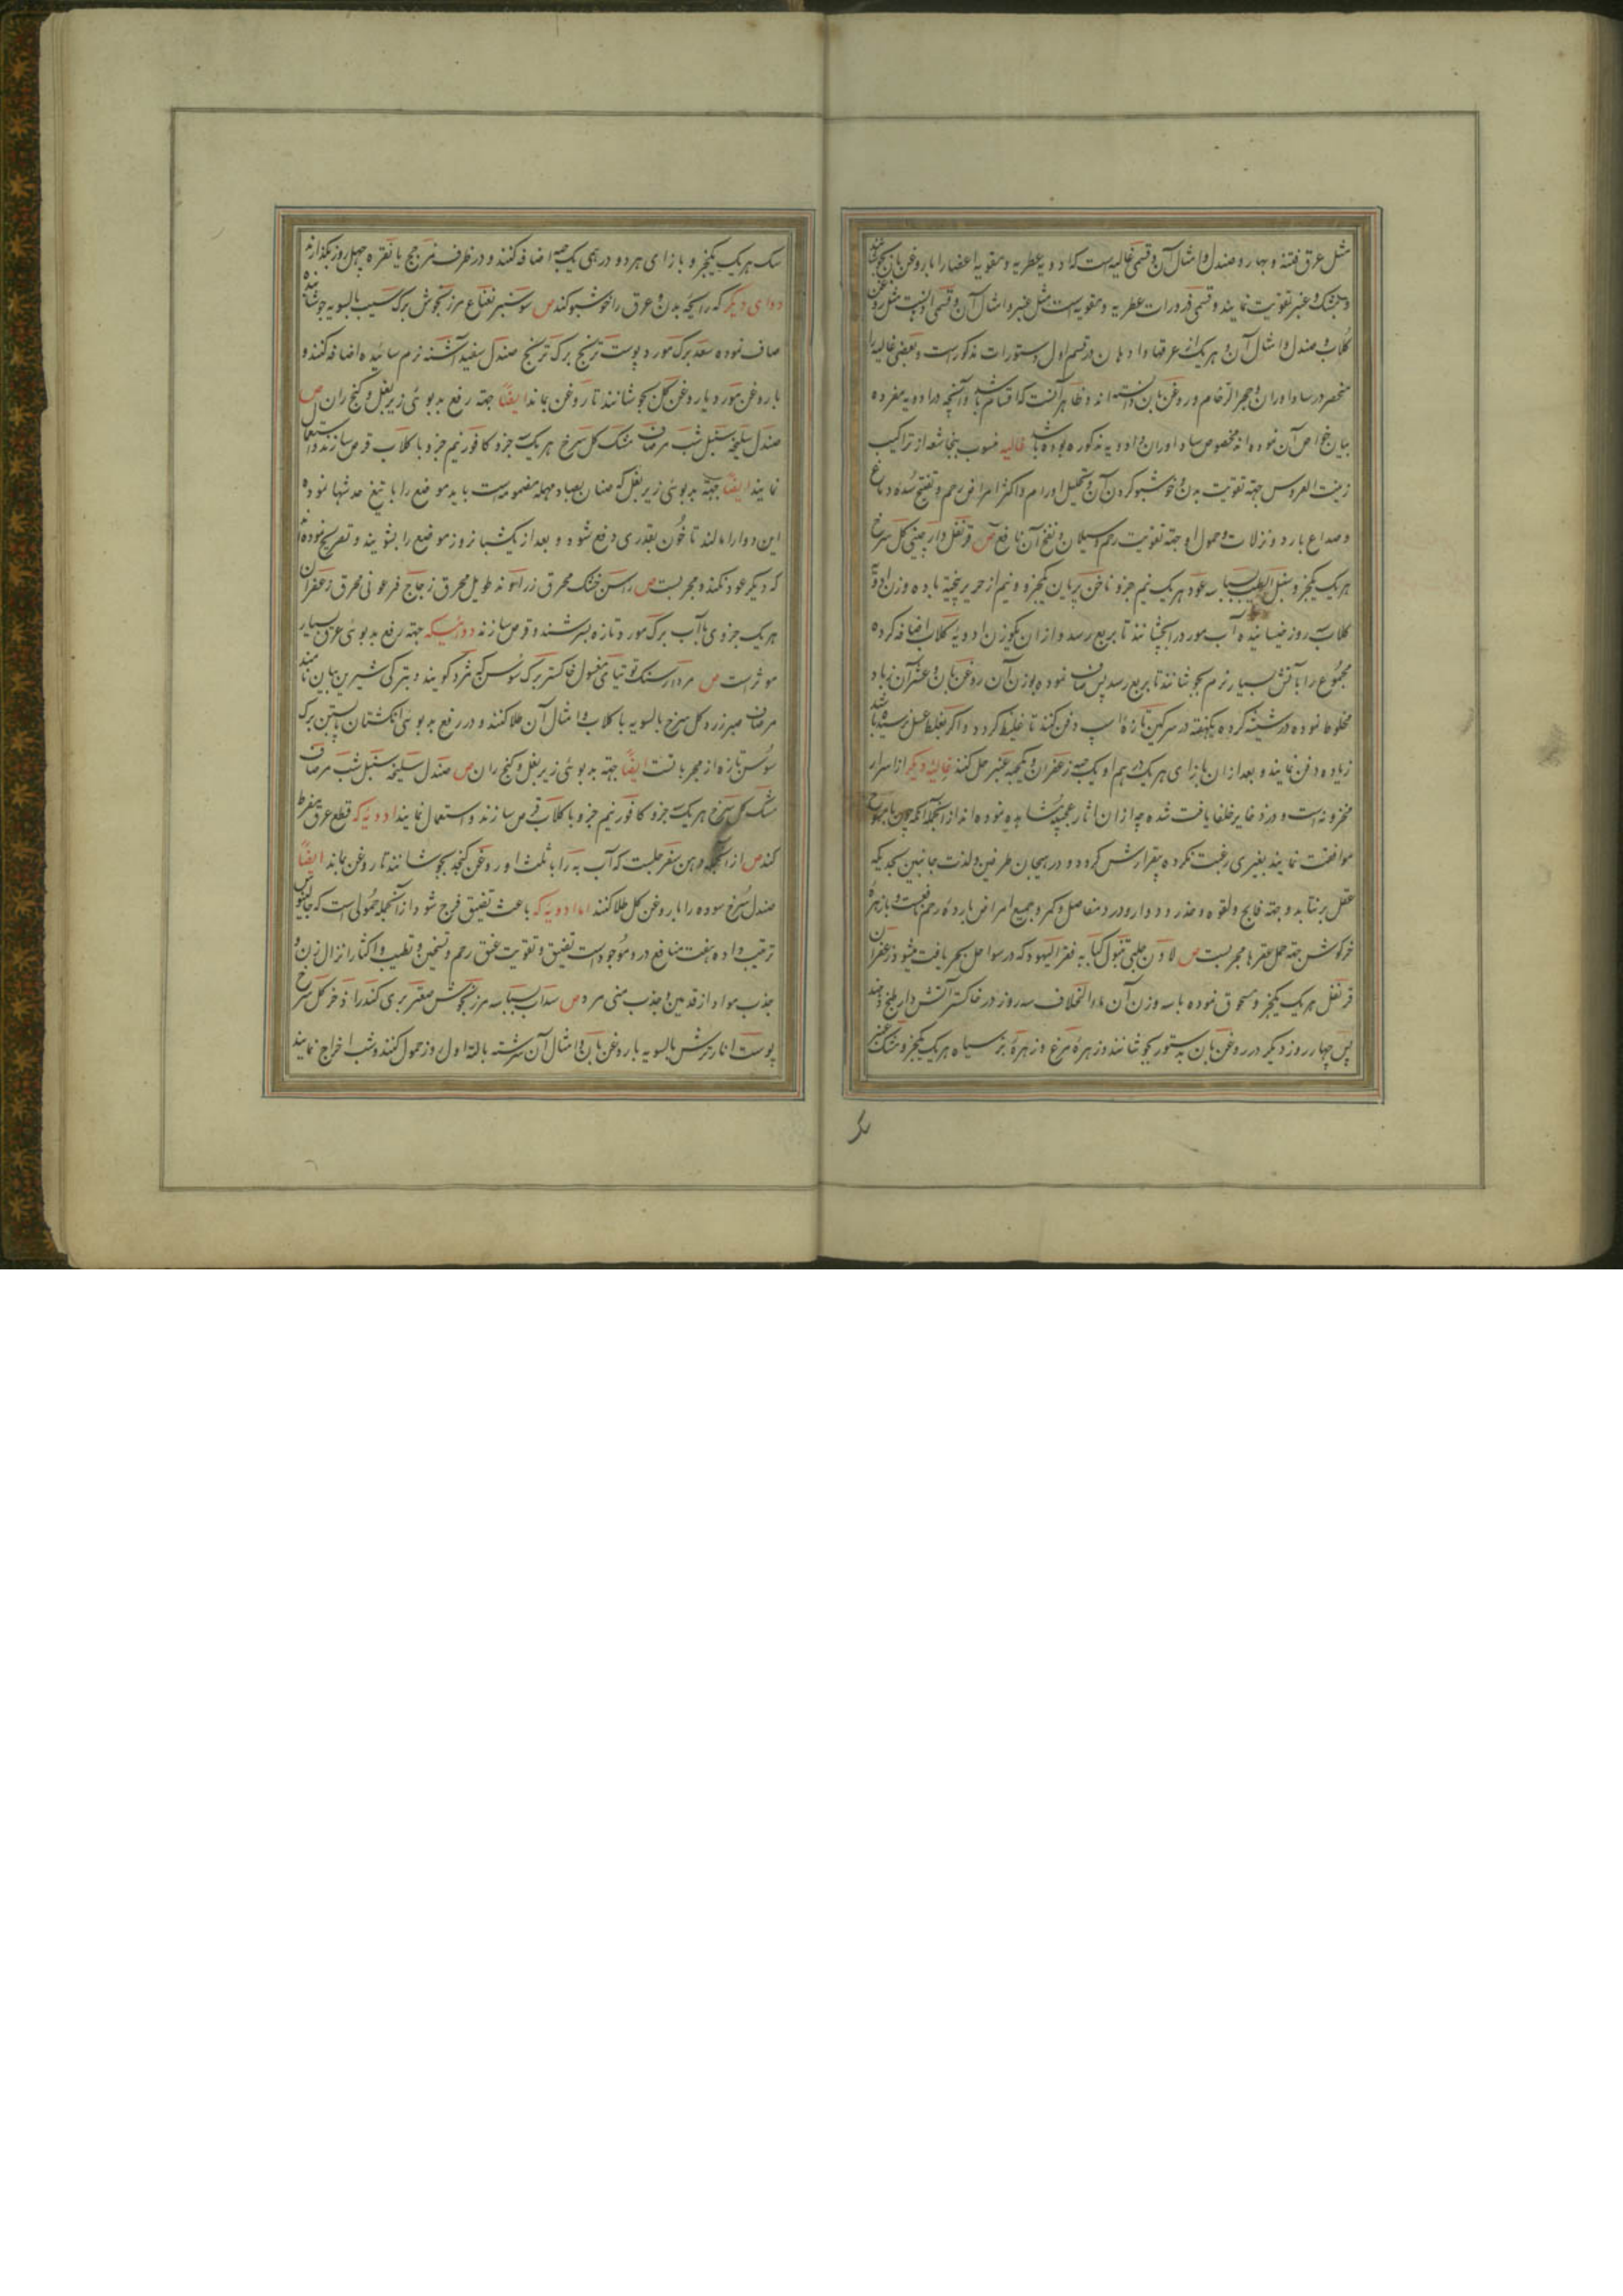 مثل عرق فتنه و بهار و صندل و امثال آن و قسمی غالیه است که ادویه عطریه و مقویه اعضا را با روغن بان بجوشانند
و بمشک و عنبر تقویت نمایند و قسمی ذرورات عطریه و مقویه است مثل عنبر و امثال آن و قسمی مثل روغن
کلاب و صندل و امثال آن و هر یک از عرقها و ادهان در قسم اول دستورات مذکور است و بعضی غالیه را
منحصر در ساداوران و حجر الرخام و روغن بان دانسته اند و ظاهر آنست که اقسام باشد و آنچه در ادویه مفرده
بیان خواص آن نموده اند مخصوص ساداوران و ادویه مذکوره بوده باشد غالیه منسوب از تراکیب
زینت العروس جهته تقویت بدن و خوشبو کردن آن و تحلیل اورام و اکثر امراض رحم و تفتیح سده دماغ
و صداع بارد و نزلات و حمول او جهته تقویت رحم و سیلان و نفخ آن نافع ص قرنفل دارچینی کل سرخ
هر یک یکجزو سنبل الطیب بسباسه عود هر یک نیم جزو ناخن پریان یکجزو و نیم از حریر بیخته با ده وزن ادویه
کلاب سه روز خیسانیده آب مورد را بجوشانند تا بربع رسد و از آن یکوزن ادویه کلاب اضافه کرده
مجموع را بآتش بسیار نرم بجوشانند تا بربع رسد پس صاف نموده بوزن آن روغن بان و عشر آن زباد
مخلوط نموده در شیشه کرده یکهفته در سرکین تازه اسب دفن کنند تا غلیظ کردد و اکر بغلظ عسل نرسیده باشد
زیاده دفن نمایند و بعد از آن بازای هر یکدرهم او یک حبه زعفران و یکحبه عنبر حل کنند غالیه دیکر از اسرار
مخزونه است و در ذخایر خلفا یافت شده چه از ان اثار عجیبه مشاهده نموده اند از آنجمله آنکه چون با
موافقت نمایند بغیری رغبت نکرده بیقرارش کردد و در هیجان طرفین و لذت جانبین بحدیکه
عقل برنتابد و جهته فالج و لقوه و خدر و دوار و درد مفاصل و کمر و جمیع امراض بارده رحم نافعست و با زهره
خرکوش جهته حمل عقرها مجربست ص لادن جلبی قنبول کبابه فقر الیهود که در سواحل بحر یافت میشود زعفران
قرنفل هر یک یکجزو مسحوق نموده با سه وزن آن ماء الخلاف سه روز در خاکستر آتش دار طبخ دهند
پس چهار روز دیکر در روغن بان بدستور بجوشانند و زهره مرغ و زهره بز سیاه هر یک یکجزو مشک عنبر
سک هر یک یکجزو بازای هر دو درهمی یک حبه اضافه کنند و در ظرف زجاج یا نقره چهل روز بکذارند
دوای دیکر که رایحه بدن و عرق را خوشبو کند ص سوسنبر نعناع مرزنجوش برک سیب بالسویه جوشانیده
صاف نموده سعد برک مورد پوست ترنج برک ترنج صندل سفید اشنه نرم سائیده اضافه کنند و
با روغن مورد یا روغن کل بجوشانند تا روغن بماند ایضاً جهته رفع بدبوئی زیر بغل و کنج ران ص
صندل سلیخه سنبل شب مرصاف مشک کل سرخ هر یک جزو کافور نیم جزو با کلاب قرص سازند و استعمال
نمایند ایضاً جهته بدبوئی زیر بغل که صنان بصاد مهمله مضمومه است باید موضع را با تیغ خدشها نموده
این دوا را مالند تا خون بقدری دفع شود و بعد از یکشبانروز موضع را بشویند و تصریح نموده اند
که دیکر عود نکند و مجربست ص راسن خشک محرق زراوند طویل محرق زجاج فرعونی محرق زعفران
هر یک جزوی با آب برک مورد تازه بسرشند و قرص سازند دوائیکه جهته رفع بدبوئی عرق بسیار
موثر است ص مرداسنک توتیای مغسول خاکستر برک سوسن که شرد کویند و بترکی شیرین بیان نامند
مرصاف صبر زرد کل سرخ بالسویه با کلاب و امثال آن طلا کنند و در رفع بدبوئی انکشتان پا بستن برک
سوسن تازه از مجرباتست ایضاً جهته بدبوئی زیر بغل و کنج ران ص صندل سلیخه سنبل شب مرصاف
مشک کل سرخ هر یک جزو کافور نیم جزو با کلاب قرص سازند و استعمال نمایند ادویه که قطع عرق مفرط
کند ص از آنجمله دهن سفرجلست که آب به را با ثلث او روغن کنجد بجوشانند تا روغن بماند ایضاً
صندل سرخ سوده را با روغن کل طلا کنند اما ادویه که باعث تضیق فرج شود از آنجمله حمولی است که جالینوس
ترتیب داده هفت منافع در و موجود است تضیق و تقویت عنق رحم و تسخین و تطییب و اکثار انزال زن و
جذب مواد از قدمین و جذب منی مرد ص سداب بسباسه مرزنجوش صعتر بری کندر اذخر کل سرخ
پوست انار ترش بالسویه با روغن بان و امثال آن سرشته بالته اول روز حمول کنند و شب اخراج نمایند